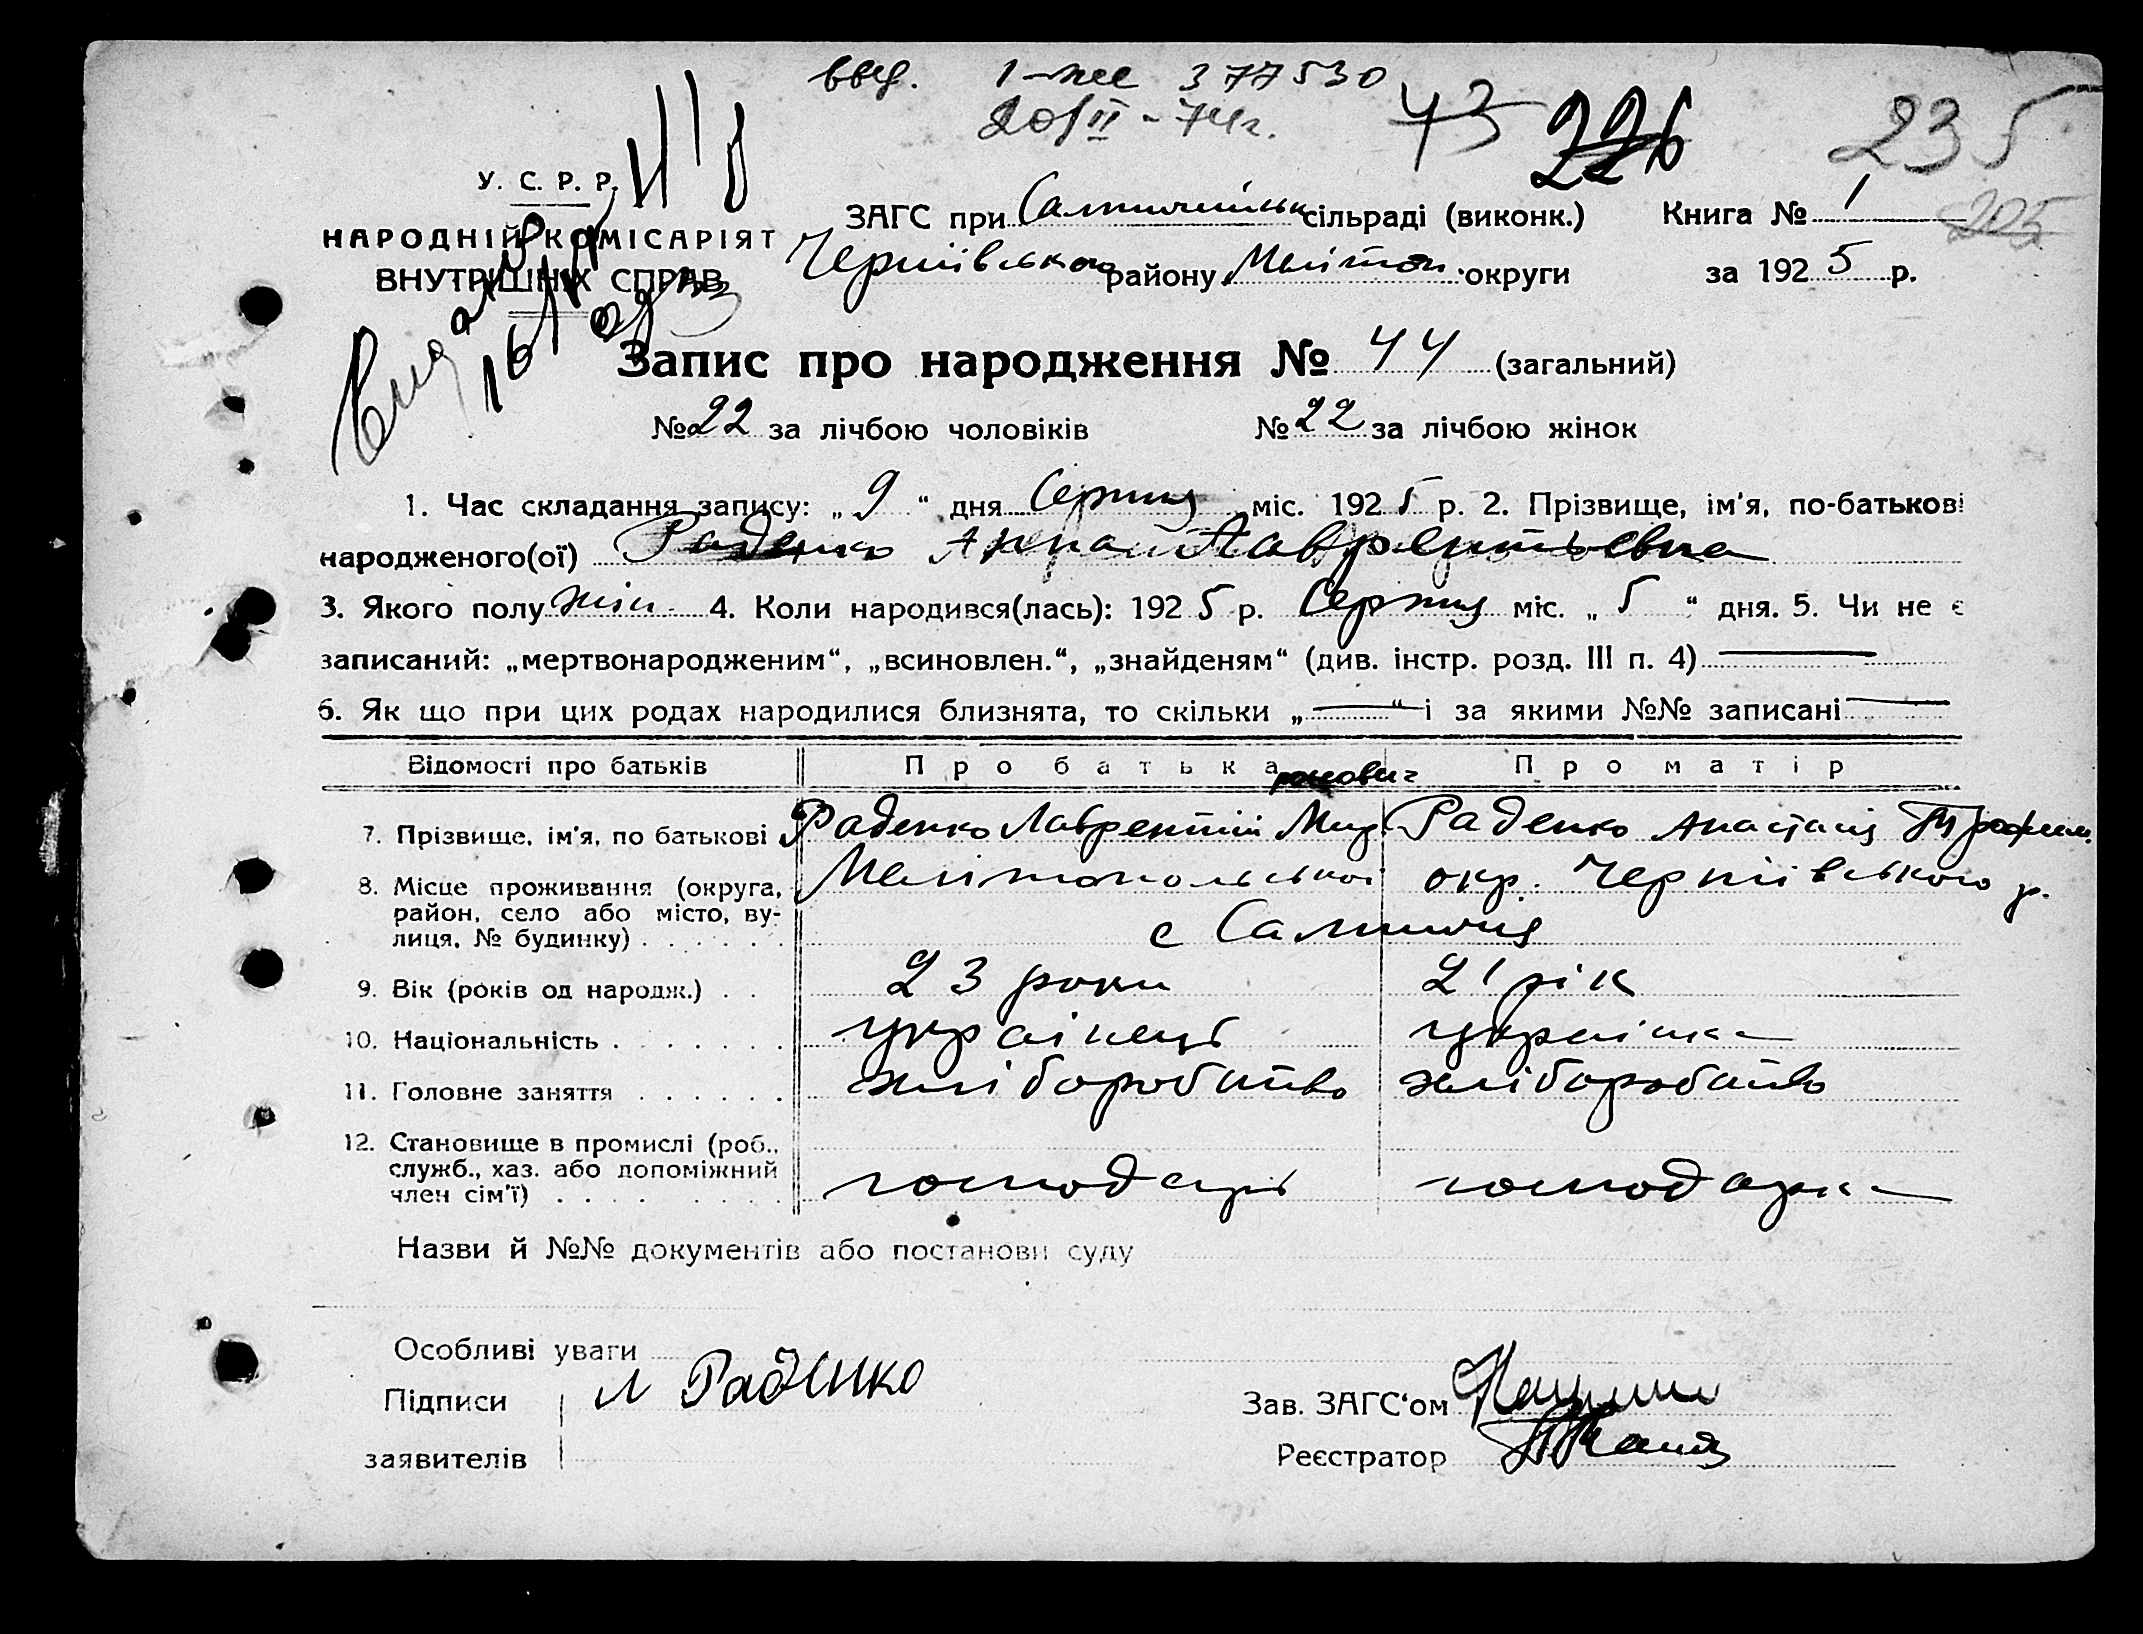 вид. 1-же 377530
20/II-74г. 43 226 235
У. С. Р. Р.
НАРОДНІЙ КОМІСАРІЯТ
ВНУТРІШНІХ СПРАВ
ЗАГС при Салтичійськ сільраді (виконк.) Книга № 1 205
Чернівського району Меліт. округи за 1925 р.
Запис про народження № 44 (загальний)
№ 22 за лічбою чоловіків № 22 за лічбою жінок
1. Час складання запису: „ 9 “ дня Серпня міс. 1925 р. 2. Прізвище, ім'я, по-батькові
народженого(ої) Раденко Лаврентьевна
3. Якого полу жін. 4. Коли народився(лась): 1925 р. Серпня міс. „ 5 “ дня. 5. Чи не є
записаний: „мертвонародженим“, „всиновлен.“, „знайденям“ (див. інстр. розд. III п. 4) —
6. Як що при цих родах народилися близнята, то скільки „ — “ і за якими №№ записані —
Відомості про батьків Про батька Про матір
7. Прізвище, ім'я, по батькові Раденко Лаврентій Раденко Анастасія Трофим.
8. Місце проживання (округа, Мелітопольської окр. Чернівського р.
район, село або місто, ву-
лиця, № будинку) . . . . . . с Салтичія
9. Вік (років од народж.) . . 23 роки 21 рік
10. Національність . . . . . . . українець українка
11. Головне заняття . . . . . . хліборобство хліборобство
12. Становище в промислі (роб.,
служб., хаз. або допоміжний
член сім'ї) . . . . . . . . господарь господарка
Назви й №№ документів або постанови суду
Особливі уваги
Підписи Л Раденко Зав. ЗАГС'ом
заявителів Реєстратор